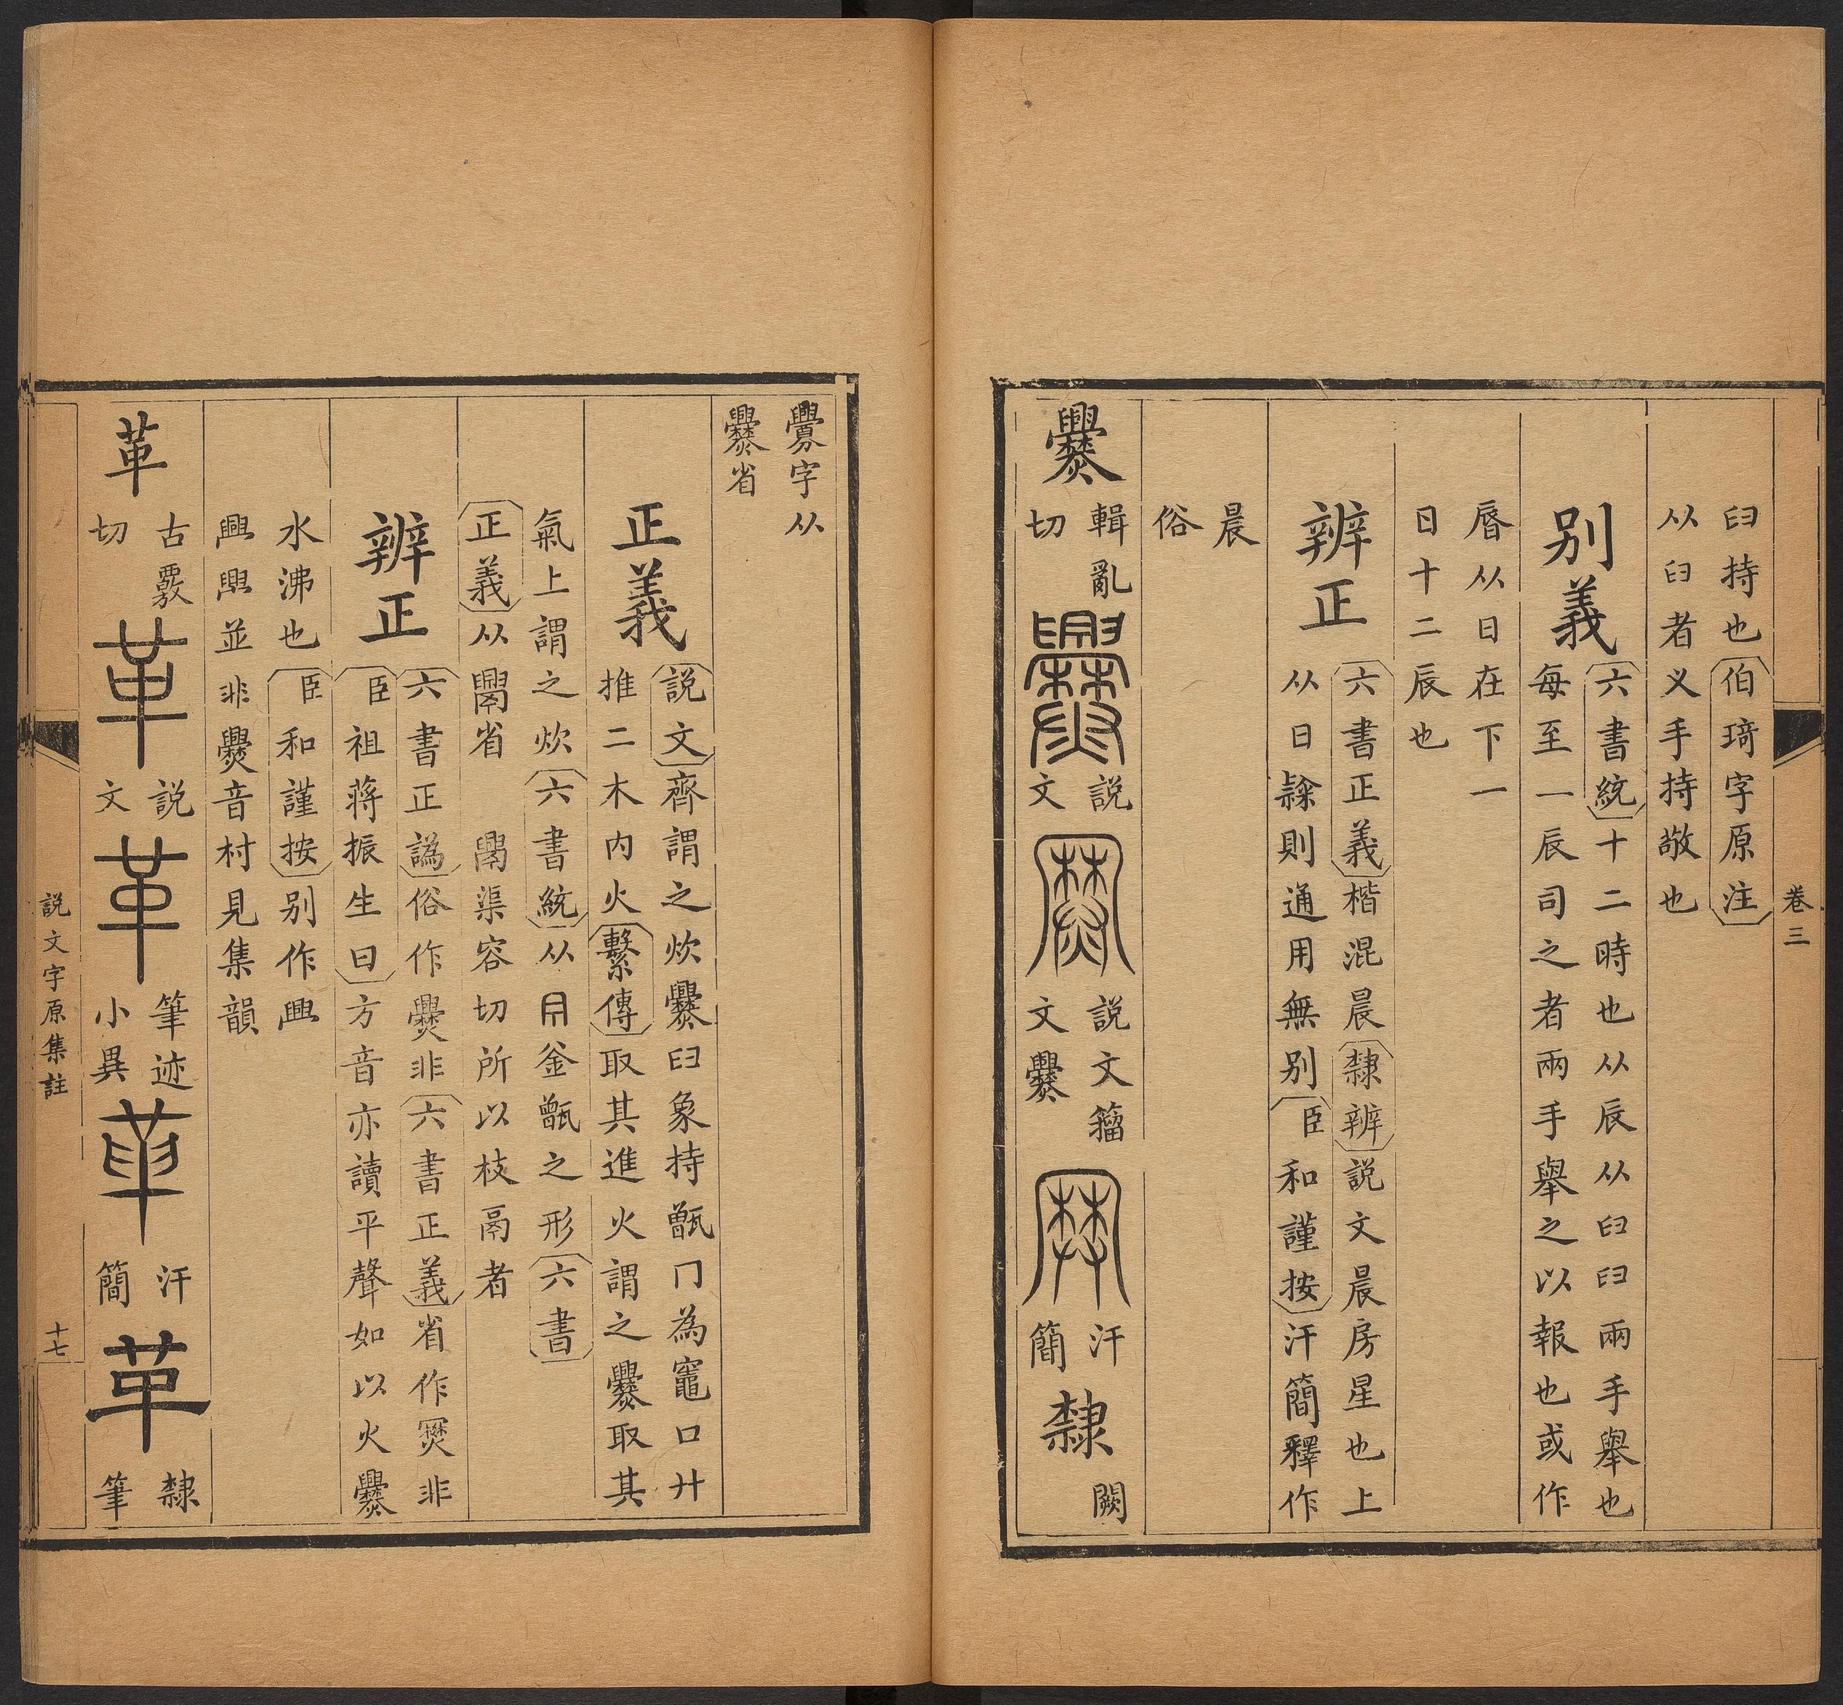 卷三
𦥑持也伯琦字原注
从𦥑者义手持敬也
別義
六書統十二時也从辰从𦥑𦥑兩手舉也
每至一辰司之者兩手舉之以報也或作
晨从日在下一
日十二辰也
辨正
六書正義楷混晨隸辨說文晨房星也上
从日隸則通用無別臣和謹按汗簡釋作
晨
俗
爨
輯亂
切
說
文
說文籀
文爨
汗
簡
隸
闕
爂字从
爨省
正義
說文齊謂之炊爨𦥑象持甑冂為竈口廾
推二木內火繫傳取其進火謂之爨取其
氣上謂之炊六書統从𠔼釜甑之形六書
正義从䦆省 䦆渠容切所以枝鬲者
辨正
六書正譌俗作㸑非六書正義省作焸非
臣祖蔣振生曰方音亦讀平聲如以火爨
水沸也臣和謹按別作興
興興並非爨音村見集韻
革
古覈
切
說
文
筆迹
小異
汗
簡
革
隸
筆
說文字原集註
十七